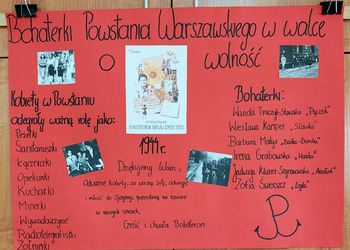 Bohaterki Powstania Warszawskiego w walce
o wolność
Kobiety w Powstaniu
odegrały ważną rolę jako:
Peżetki
Sanitariuszki
Łączniczki
Opiekunki
Kucharki
Minerki
Wywiadowczynie
Radiotelegrafistki
Żołnierki
1944r.
Dziękujemy Wam,
Odważne kobiety, za waszą siłę, odwagę
i miłość do Ojczyzny, pozostaną na zawsze
w naszych sercach.
Cześć i chwała Bohaterom.
Bohaterki:
Wanda "Pączek"
Wiesława Kamper "Sławka"
Barbara Matys
Irena Grabowska "Hanka"
Jadwiga Klarner-Szymanowska
Zofia Świeszcz "Zojka"